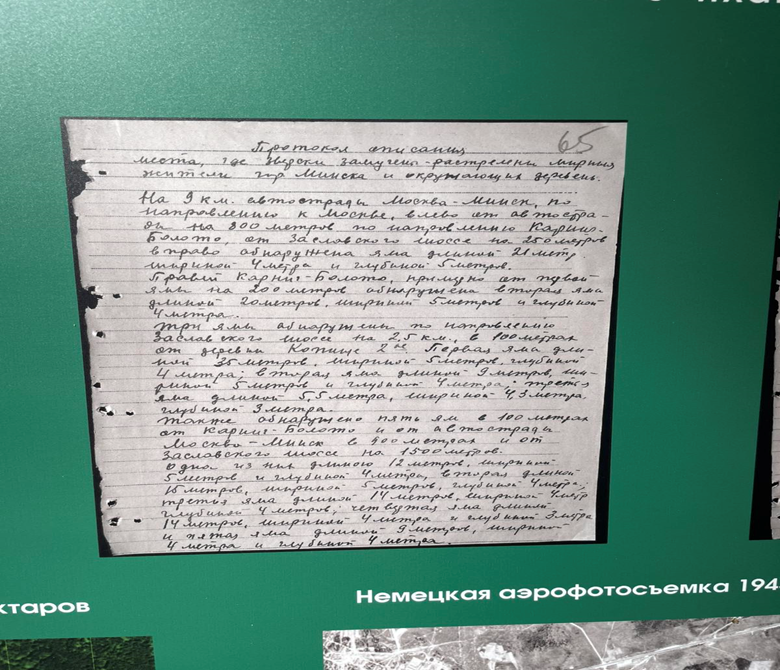 65
Протокол описания
места, где зверски замучены-растреляны мирных
жители гор Минска и окружающих деревень.
На 9 км. автострады Москва-Минск, по
направлению к Москве, влево от автостра-
ды на 800 метров по направлению Карниз-
Болото, от Заславского шоссе на 250 метров
вправо обнаружена яма длиной 21 метр
шириной 4 метра и глубиной 5 метров.
Правей Карниз-Болото, прямо от первой
ямы на 200 метров обнаружена вторая яма
длиной 20 метров, шириной 5 метров и глубиной
4 метра.
Три ямы обнаружены по направлению
Заславского шоссе на 2,5 км., в 100 метрах
от деревни Копище 2й Первая яма дли-
ной 35 метров, шириной 5 метров, глубиной
4 метра; вторая яма длиной 9 метров, ши-
риной 5 метров и глубиной 4 метра; третья
яма длиной 5,5 метра, шириной 4,5 метра.
глубиной 3 метра.
Также обнаружено пять ям в 100 метрах
от Карниз-Болото и от автострады
Москва-Минск в 500 метрах и от
Заславского шоссе на 1500 метров.
одна из них длиною 12 метров, шириной
5 метров и глубиной 4 метра, вторая длиной
15 метров, шириной 5 метров, глубиной 4 метра;
третья яма длиной 14 метров, шириной 4 метр
глубиной 4 метров; четвертая яма длиной
14 метров, шириной 4 метра и глубиной 3 метра
и пятая яма длиной 9 метров, шириной
4 метра и глубиной 4 метра.
ктаров
Немецкая аэрофотосъемка 194